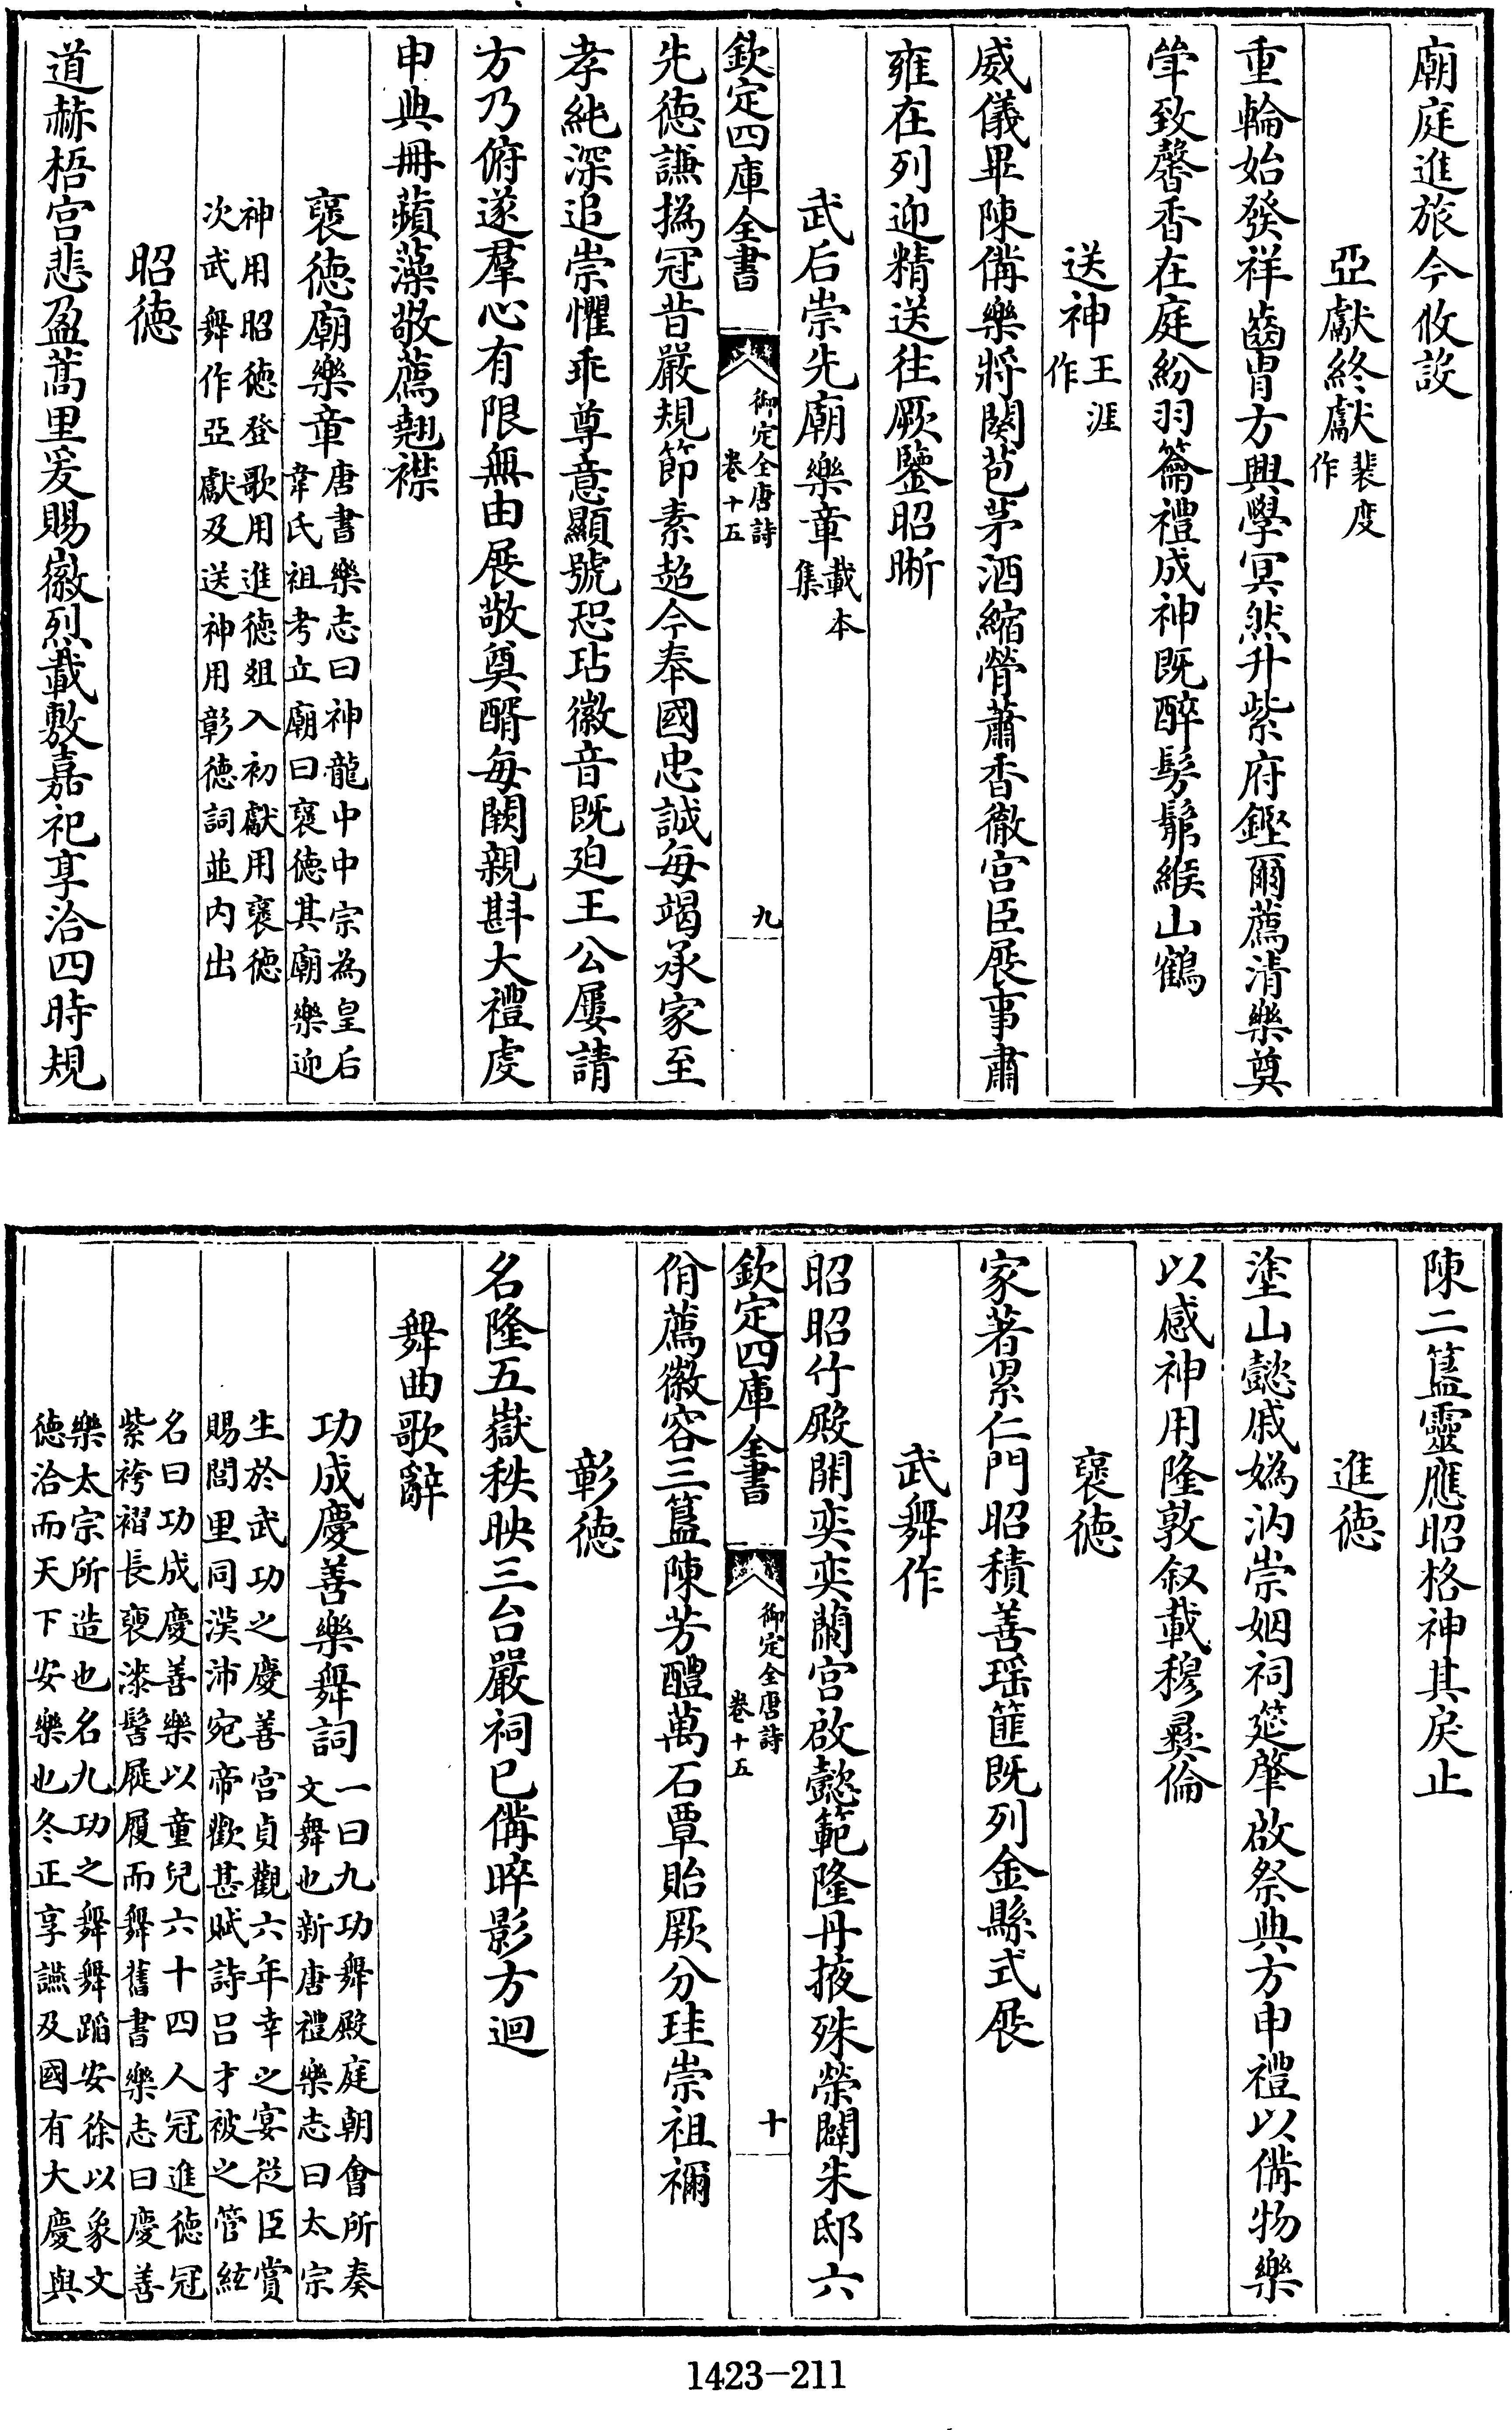 廟庭進旅今攸設
亞獻終獻裴度作
重輪始發祥齒胄方興學冥然升紫府鏗爾薦清樂奠
斝致馨香在庭紛羽籥禮成神既醉髣髴緱山鶴
送神王涯作
威儀畢陳備樂將闋苞茅酒縮膋蕭香徹宮臣展事肅
雍在列迎精送往厥鑒昭晰
武后崇先廟樂章載本集
欽定四庫全書
御定全唐詩
卷十五
九
先德謙撝冠昔嚴規節素超今奉國忠誠每竭承家至
孝純深追崇懼乖尊意顯號恐玷徽音既迫王公屢請
方乃俯遂羣心有限無由展敬奠醑每闕親斟大禮虔
申典冊蘋藻敬薦翹襟
襃德廟樂章唐書樂志曰神龍中中宗為皇后
韋氏祖考立廟曰襃德其廟樂迎
神用昭德登歌用進德俎入初獻用襃德
次武舞作亞獻及送神用彰德詞並内出
昭德
道赫梧宫悲盈蒿里爰賜徽烈載敷嘉祀享洽四時規
陳二簋靈應昭格神其戾止
進德
塗山懿戚媯汭崇姻祠筵肇啟祭典方申禮以備物樂
以感神用隆敦叙載穆彞倫
襃德
家著累仁門昭積善瑶篚既列金縣式展
武舞作
昭昭竹殿開奕奕蘭宫啟懿範隆丹掖殊榮闢朱邸六
欽定四庫全書
御定全唐詩
卷十五
十
佾薦徽容三簋陳芳醴萬石覃貽厥分珪崇祖禰
彰德
名隆五嶽秩映三台嚴祠已備睟影方迴
舞曲歌辭
功成慶善樂舞詞一曰九功舞殿庭朝會所奏
文舞也新唐禮樂志曰太宗
生於武功之慶善宫貞觀六年幸之宴從臣賞
賜閭里同漢沛宛帝歡甚賦詩呂才被之管絃
名曰功成慶善樂以童兒六十四人冠進德冠
紫袴褶長袖漆髻屣履而舞舊書樂志曰慶善
樂太宗所造也名九功之舞舞蹈安徐以象文
德洽而天下安樂也冬正享讌及國有大慶與
1423-211